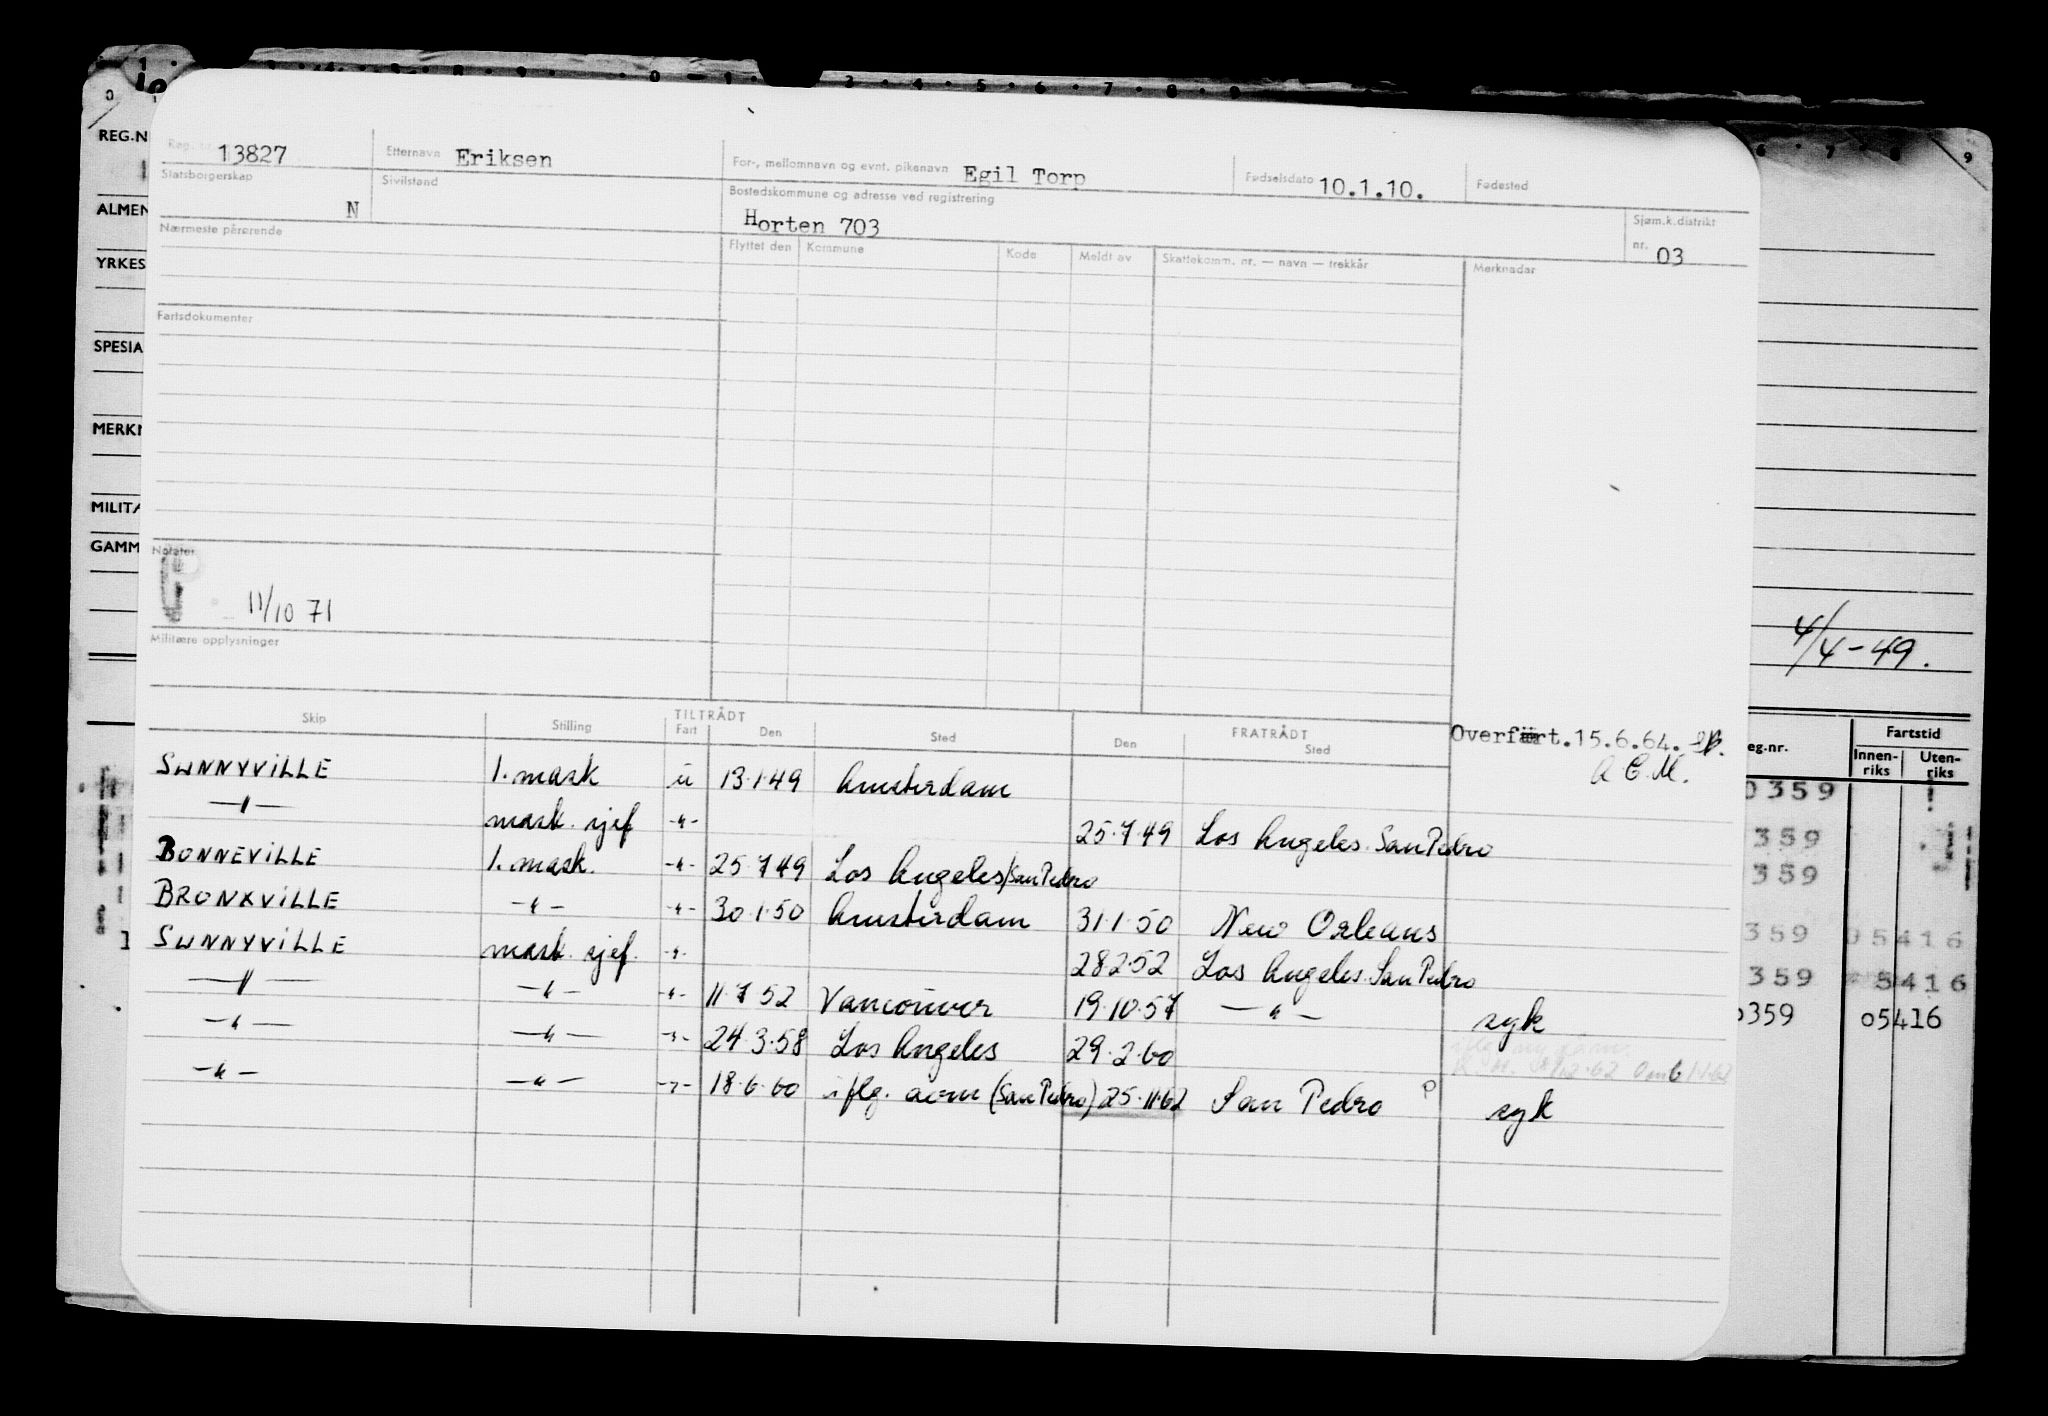 REG.N
ALMEN
YRKES
SPESIA
MERKN
MILITÆ
GAMM
Reg. nr. 13827 Etternavn Eriksen For-, mellomnavn og evnt. pikenavn Egil Torp Fødselsdato 10.1.10. Fødested
Statsborgerskap N Sivilstand Bostedskommune og adresse ved registrering Horten 703 Sjøm.k.distrikt nr. 03
Nærmeste pårørende Flyttet den Kommune Kode Meldt av Skattekomm. nr. — navn — trekkår Merknader
Fartsdokumenter
Notater
11/10 71
Militære opplysninger
4/4-49.
TILTRÅDT FRATRÅDT
Skip Stilling Fart Den Sted Den Sted
Overført.15.6.64.
SUNNYVILLE 1. mask u 13.1.49 Amsterdam
—"— mask. sjef -"- 25.7.49 Los Angeles. San Pedro
BONNEVILLE 1. mask. -"- 25.7.49 Los Angeles/San Pedro
BRONXVILLE -"- -"- 30.1.50 Amsterdam 31.1.50 New Orleans
SUNNYVILLE mask. sjef. -"- 28.2.52 Los Angeles. San Pedro
—"— -"- -"- 11.7.52 Vancouver 19.10.57 —"— syk
—"— —"— -"- 24.3.58 Los Angeles 29.2.60
-"- -"- -"- 18.6.60 iflg. aom (San Pedro) 25.11.62 San Pedro syk
eg.nr. Fartstid
Innen-riks Uten-riks
0359
359
359
359 05416
359 5416
0359 05416